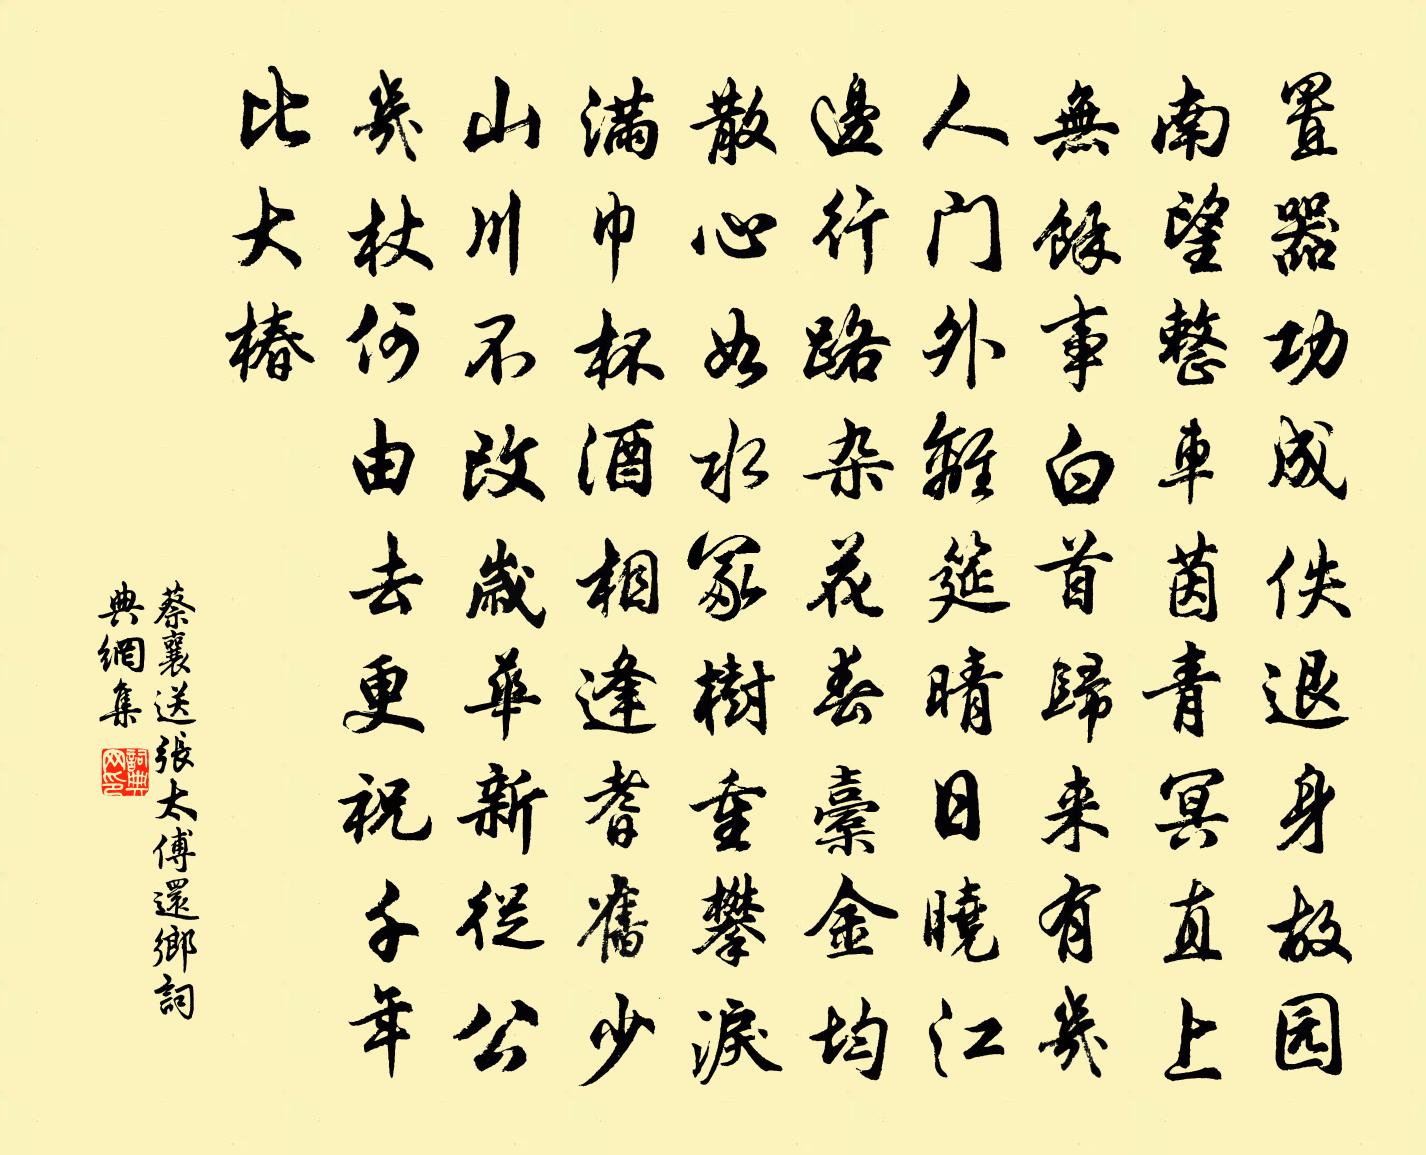 置器功成佚退身故园
南望整車茵青冥直上
無餘事白首歸来有幾
人门外離筵晴日曉江
邊行路杂花春橐金均
散心如水冢樹重攀淚
满巾杯酒相逢耆舊少
山川不改歲華新從公
幾杖何由去更祝千年
比大椿
蔡襄送張太傅還鄉詞
典網集
詞典网印